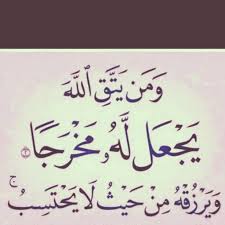 وَمَن يَتَّقِ ٱللَّهَ
يَجْعَل لَّهُۥ مَخْرَجًا ۝٢
وَيَرْزُقْهُ مِنْ حَيْثُ لَا يَحْتَسِبُ ۚ